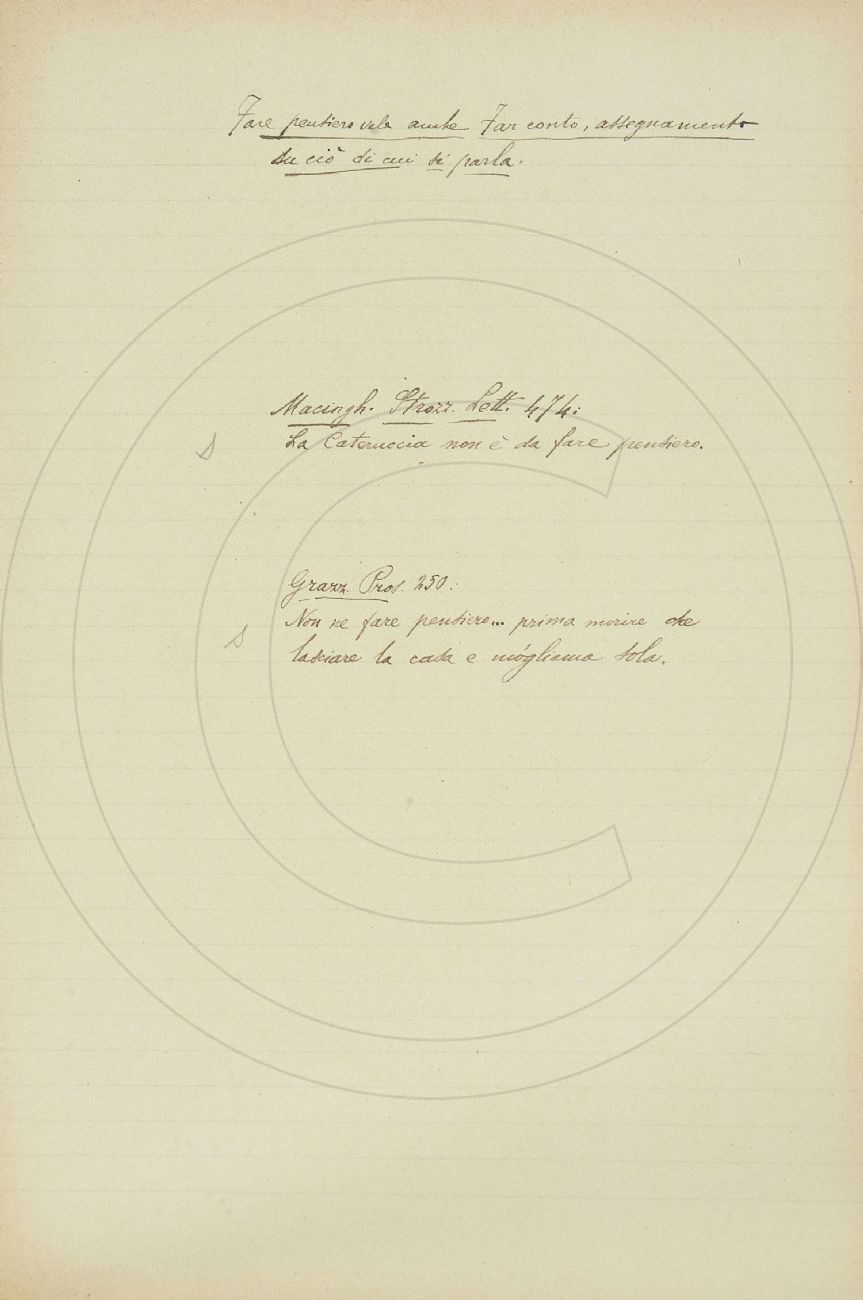 Fare pensiero vale anche Far conto, assegnamento
su ciò di cui si parla.
Macingh. Strozz. Lett. 474:
La Cateruccia non è da fare pensiero.
Grazz. Pros. 250:
Non ne fare pensiero... prima morire che
lasciare la casa e mógliama sola.